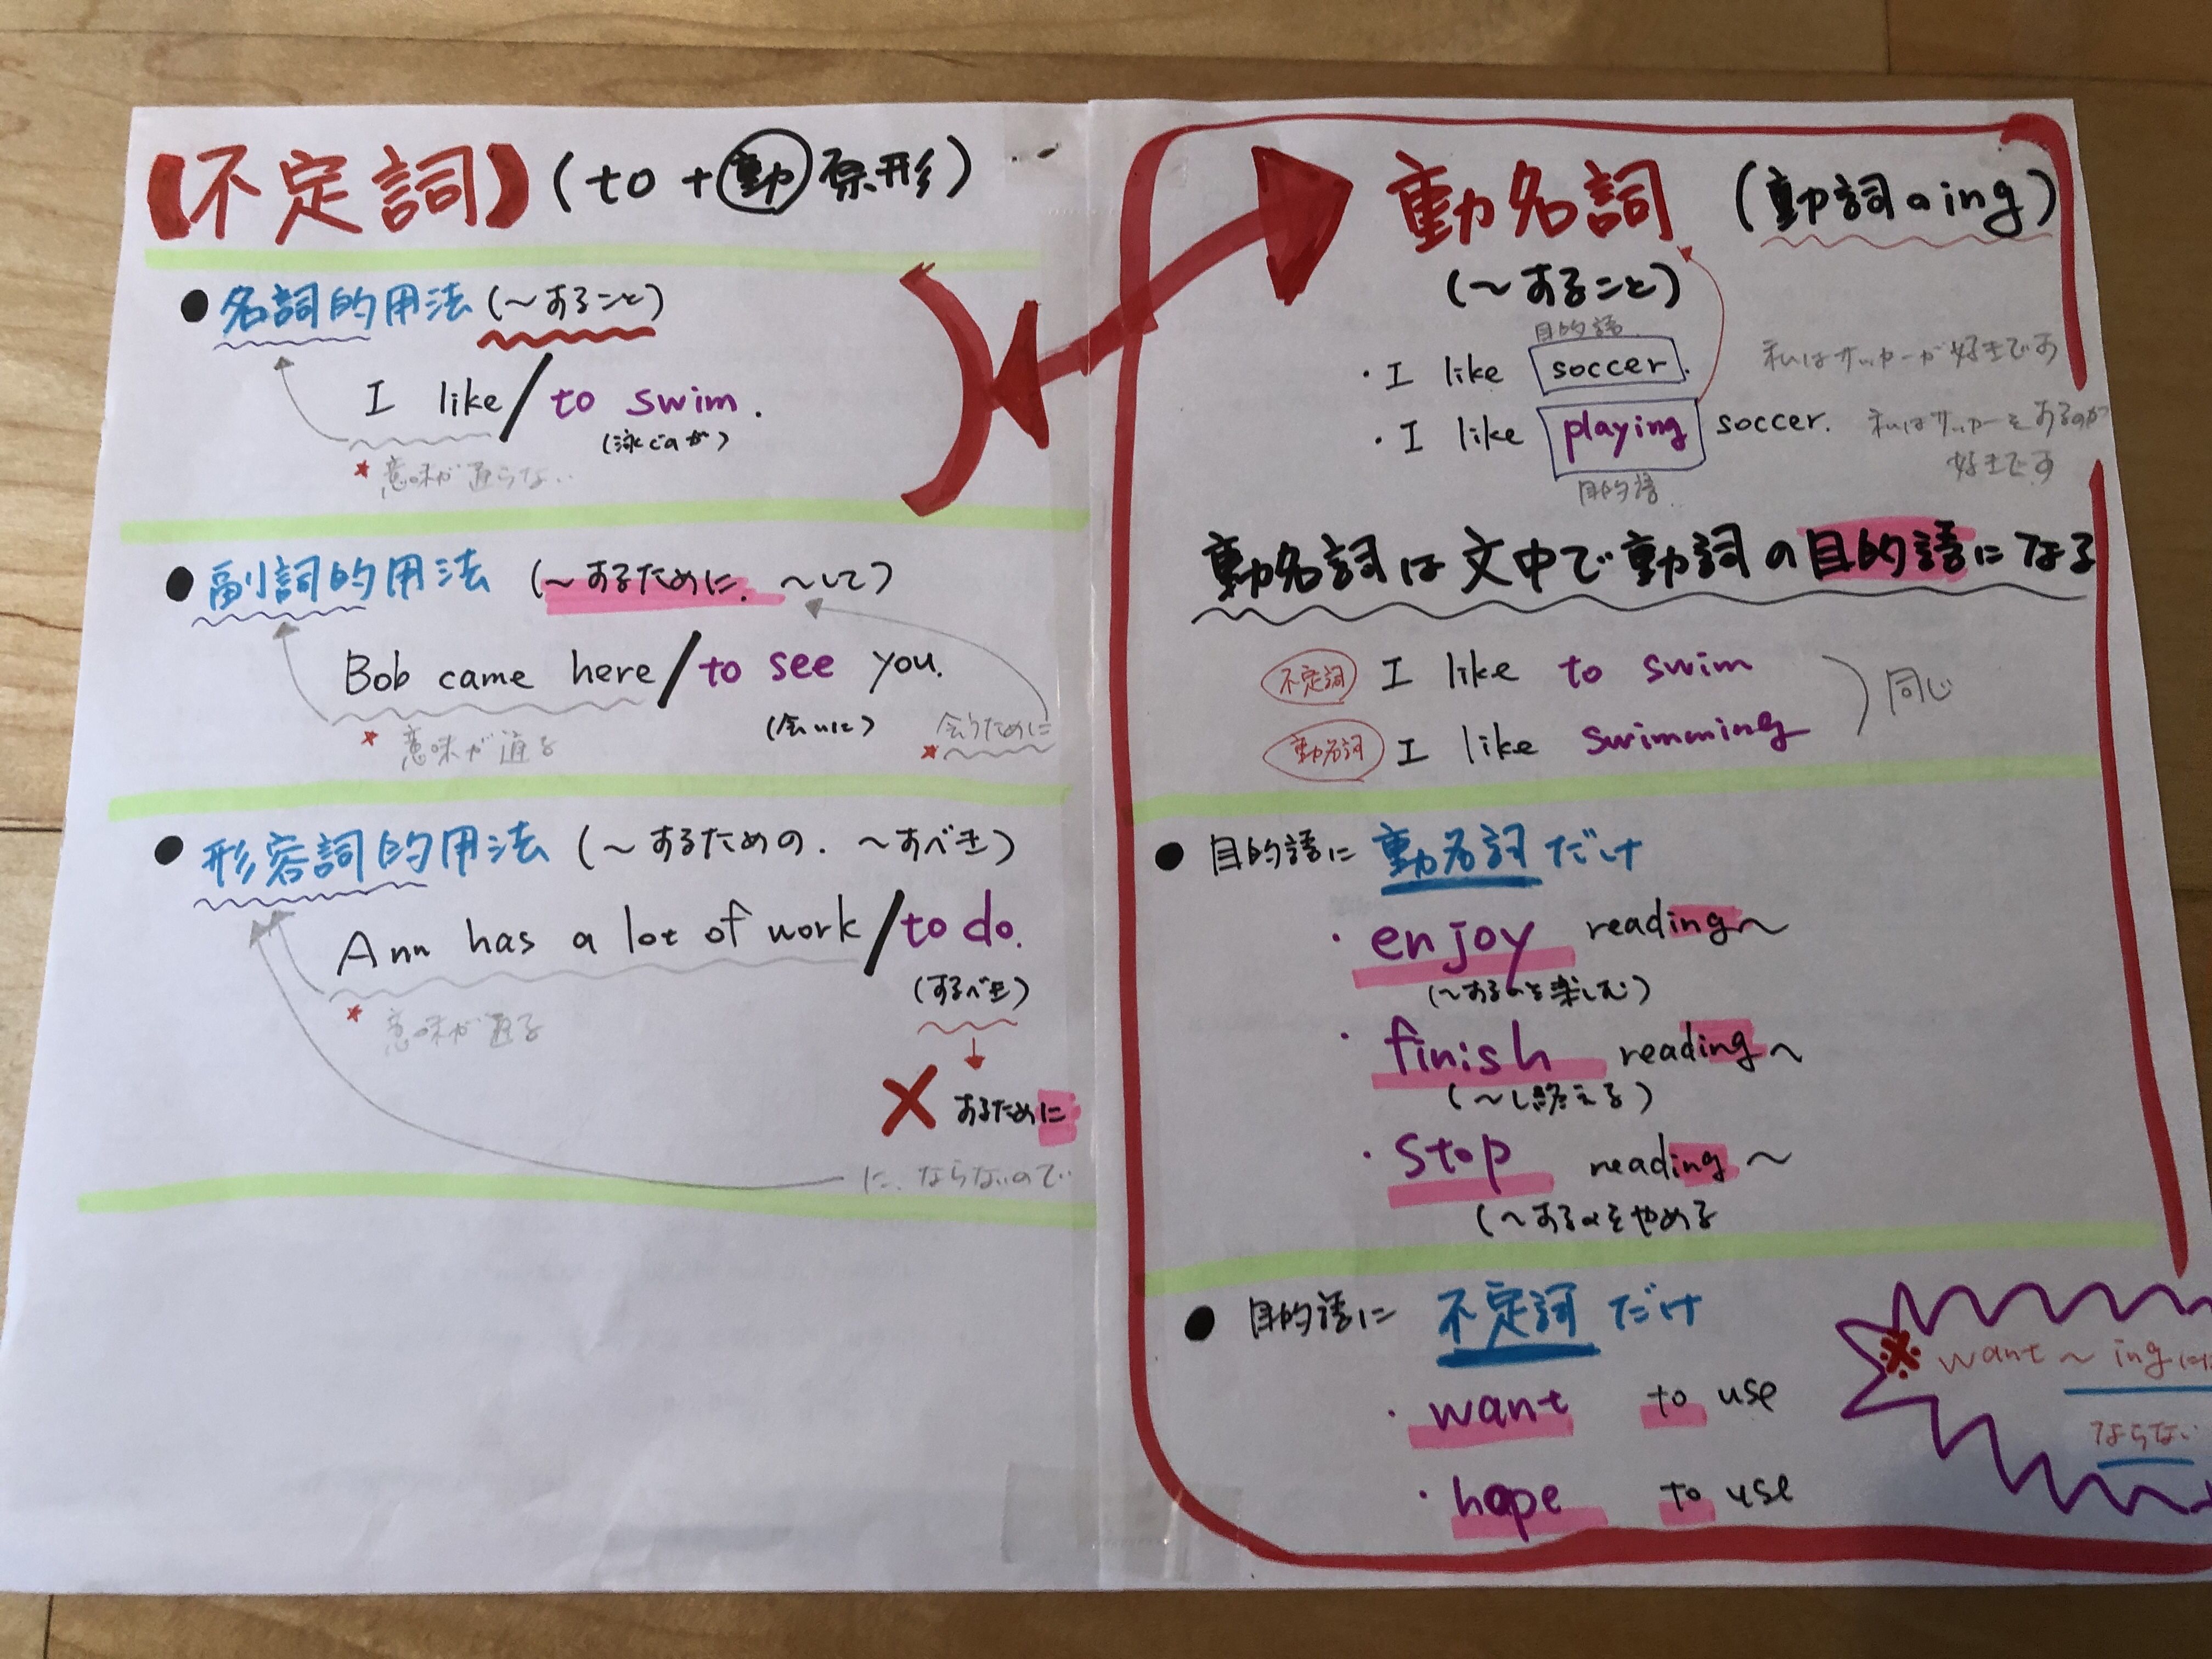 【不定詞】(to+動原形)
●名詞的用法(～すること)
I like/to swim.
(泳ぐのが)
*意味が通らない..
●副詞的用法(～するために、～して)
Bob came here/to see you.
(会いに)
*会うために
*意味が通る
●形容詞的用法(～するための、～すべき)
Ann has a lot of work/to do.
(するべき)
*意味が通る
↓
×するために
に、ならないので..
動名詞(動詞のing)
(～すること)
目的語
・I like soccer. 私はサッカーが好きです
・I like playing soccer. 私はサッカーをするのが
好きです
目的語
動名詞は文中で動詞の目的語になる
不定詞 I like to swim
動名詞 I like swimming
同じ
●目的語に動名詞だけ
・enjoy reading～
(～するのを楽しむ)
・finish reading～
(～し終える)
・stop reading～
(～するのをやめる
●目的語に不定詞だけ
・want to use
・hope to use
※want～ing
ならない